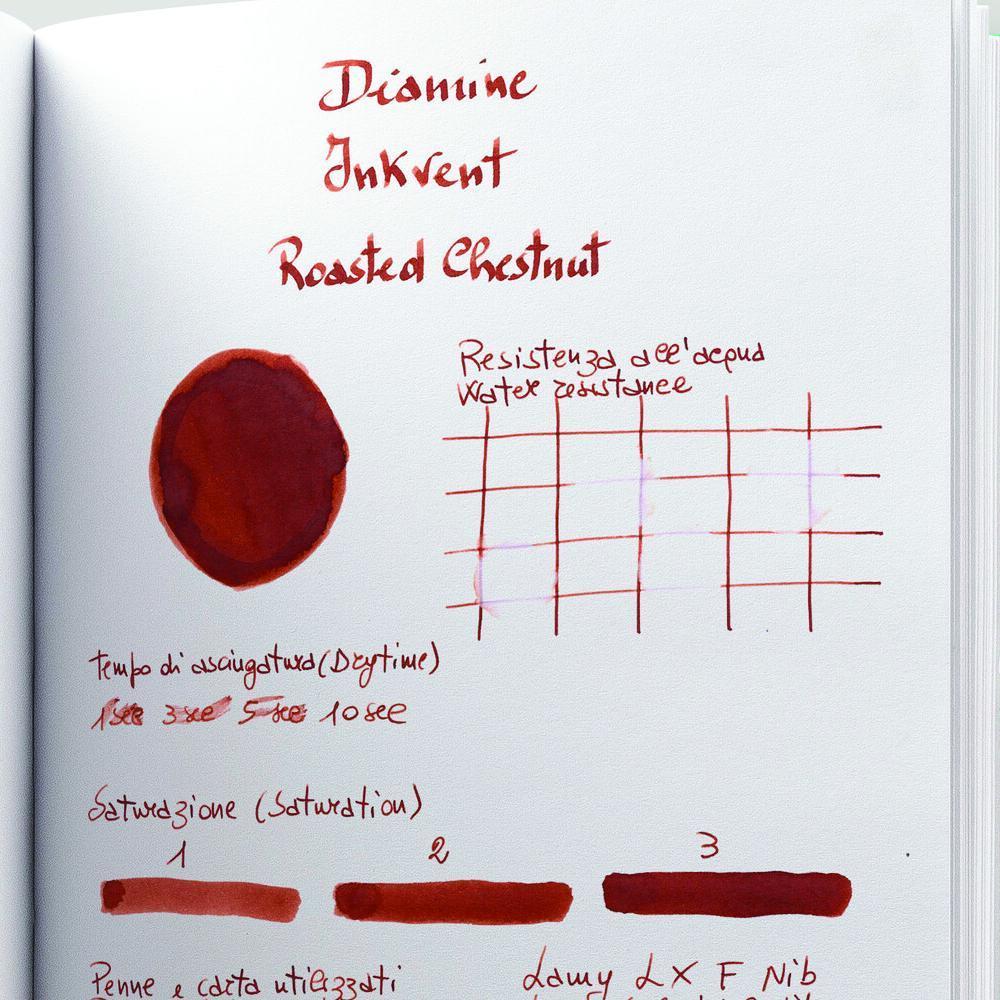 Diamine
Inkvent
Roasted Chestnut
Resistenza all'acqua
Water resistance
Tempo di asciugatura (Drytime)
1 sec 3 sec 5 sec 10 sec
Saturazione (Saturation)
1 2 3
Penne e carta utilizzati
Lamy LX F Nib